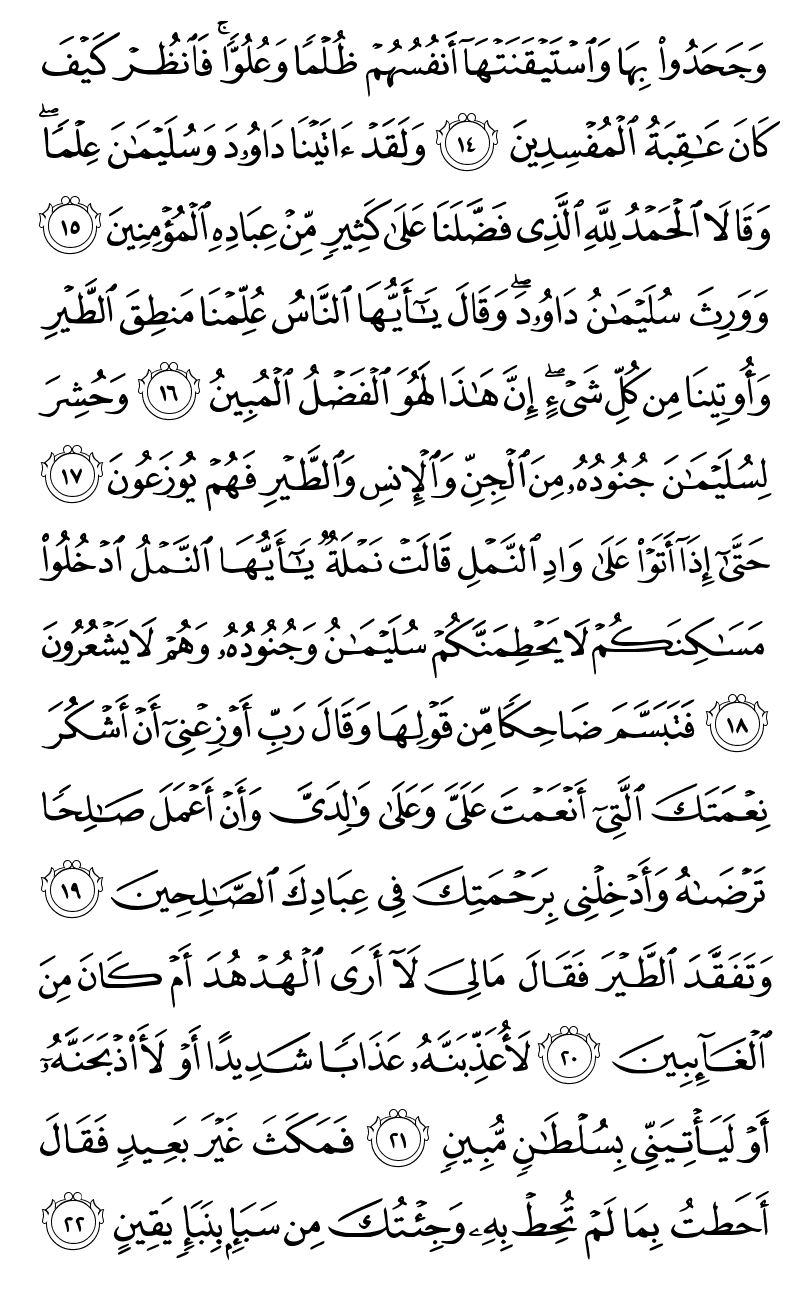 وَجَحَدُواْ بِهَا وَٱسۡتَيۡقَنَتۡهَآ أَنفُسُهُمۡ ظُلۡمٗا وَعُلُوّٗاۚ فَٱنظُرۡ كَيۡفَ
كَانَ عَٰقِبَةُ ٱلۡمُفۡسِدِينَ ١٤ وَلَقَدۡ ءَاتَيۡنَا دَاوُۥدَ وَسُلَيۡمَٰنَ عِلۡمٗاۖ
وَقَالَا ٱلۡحَمۡدُ لِلَّهِ ٱلَّذِي فَضَّلَنَا عَلَىٰ كَثِيرٖ مِّنۡ عِبَادِهِ ٱلۡمُؤۡمِنِينَ ١٥
وَوَرِثَ سُلَيۡمَٰنُ دَاوُۥدَۖ وَقَالَ يَٰٓأَيُّهَا ٱلنَّاسُ عُلِّمۡنَا مَنطِقَ ٱلطَّيۡرِ
وَأُوتِينَا مِن كُلِّ شَيۡءٍۖ إِنَّ هَٰذَا لَهُوَ ٱلۡفَضۡلُ ٱلۡمُبِينُ ١٦ وَحُشِرَ
لِسُلَيۡمَٰنَ جُنُودُهُۥ مِنَ ٱلۡجِنِّ وَٱلۡإِنسِ وَٱلطَّيۡرِ فَهُمۡ يُوزَعُونَ ١٧
حَتَّىٰٓ إِذَآ أَتَوۡاْ عَلَىٰ وَادِ ٱلنَّمۡلِ قَالَتۡ نَمۡلَةٞ يَٰٓأَيُّهَا ٱلنَّمۡلُ ٱدۡخُلُواْ
مَسَٰكِنَكُمۡ لَا يَحۡطِمَنَّكُمۡ سُلَيۡمَٰنُ وَجُنُودُهُۥ وَهُمۡ لَا يَشۡعُرُونَ
١٨ فَتَبَسَّمَ ضَاحِكٗا مِّن قَوۡلِهَا وَقَالَ رَبِّ أَوۡزِعۡنِيٓ أَنۡ أَشۡكُرَ
نِعۡمَتَكَ ٱلَّتِيٓ أَنۡعَمۡتَ عَلَيَّ وَعَلَىٰ وَٰلِدَيَّ وَأَنۡ أَعۡمَلَ صَٰلِحٗا
تَرۡضَىٰهُ وَأَدۡخِلۡنِي بِرَحۡمَتِكَ فِي عِبَادِكَ ٱلصَّٰلِحِينَ ١٩
وَتَفَقَّدَ ٱلطَّيۡرَ فَقَالَ مَالِيَ لَآ أَرَى ٱلۡهُدۡهُدَ أَمۡ كَانَ مِنَ
ٱلۡغَآئِبِينَ ٢٠ لَأُعَذِّبَنَّهُۥ عَذَابٗا شَدِيدًا أَوۡ لَأَاْذۡبَحَنَّهُۥٓ
أَوۡ لَيَأۡتِيَنِّي بِسُلۡطَٰنٖ مُّبِينٖ ٢١ فَمَكَثَ غَيۡرَ بَعِيدٖ فَقَالَ
أَحَطتُ بِمَا لَمۡ تُحِطۡ بِهِۦ وَجِئۡتُكَ مِن سَبَإِۭ بِنَبَإٖ يَقِينٍ ٢٢